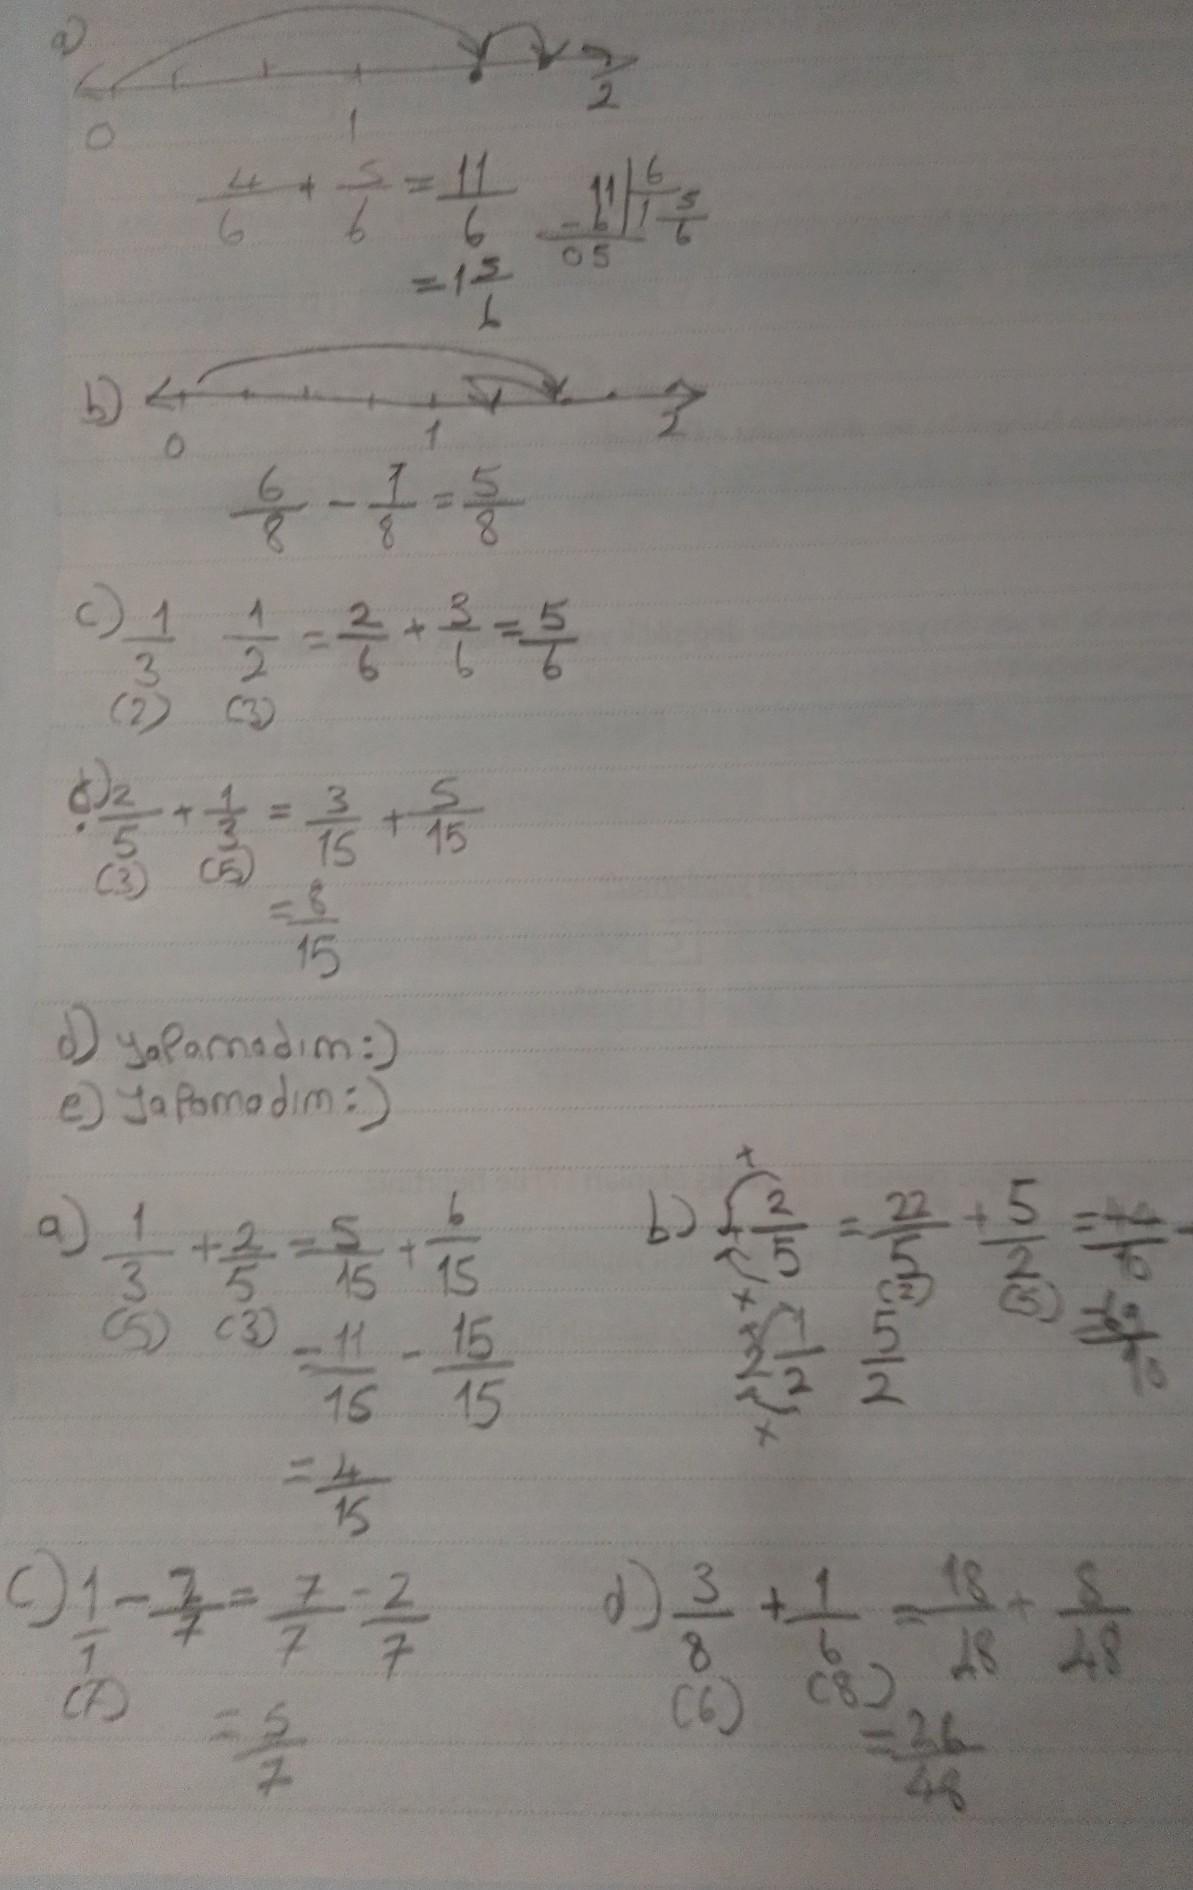 a)
0 1 2
4/6 + 5/6 = 11/6 11 | 6
- 6 1 5/6
05
= 1 5/6
b)
0 1 2
6/8 - 1/8 = 5/8
c) 1/3 1/2 = 2/6 + 3/6 = 5/6
(2) (3)
ç) 2/5 + 1/3 = 3/15 + 5/15
(3) (5)
= 8/15
d) yapamadım :)
e) yapamadım :)
a) 1/3 + 2/5 = 5/15 + 6/15
(5) (3)
= 11/15 - 15/15
= 4/15
b) 2/5 = 22/5 + 5/2 =
+ x (2) (5)
2 1/2 5/2
+ x
c) 1/1 - 2/7 = 7/7 - 2/7
(7)
= 5/7
d) 3/8 + 1/6 = 18/48 + 8/48
(6) (8)
= 26/48